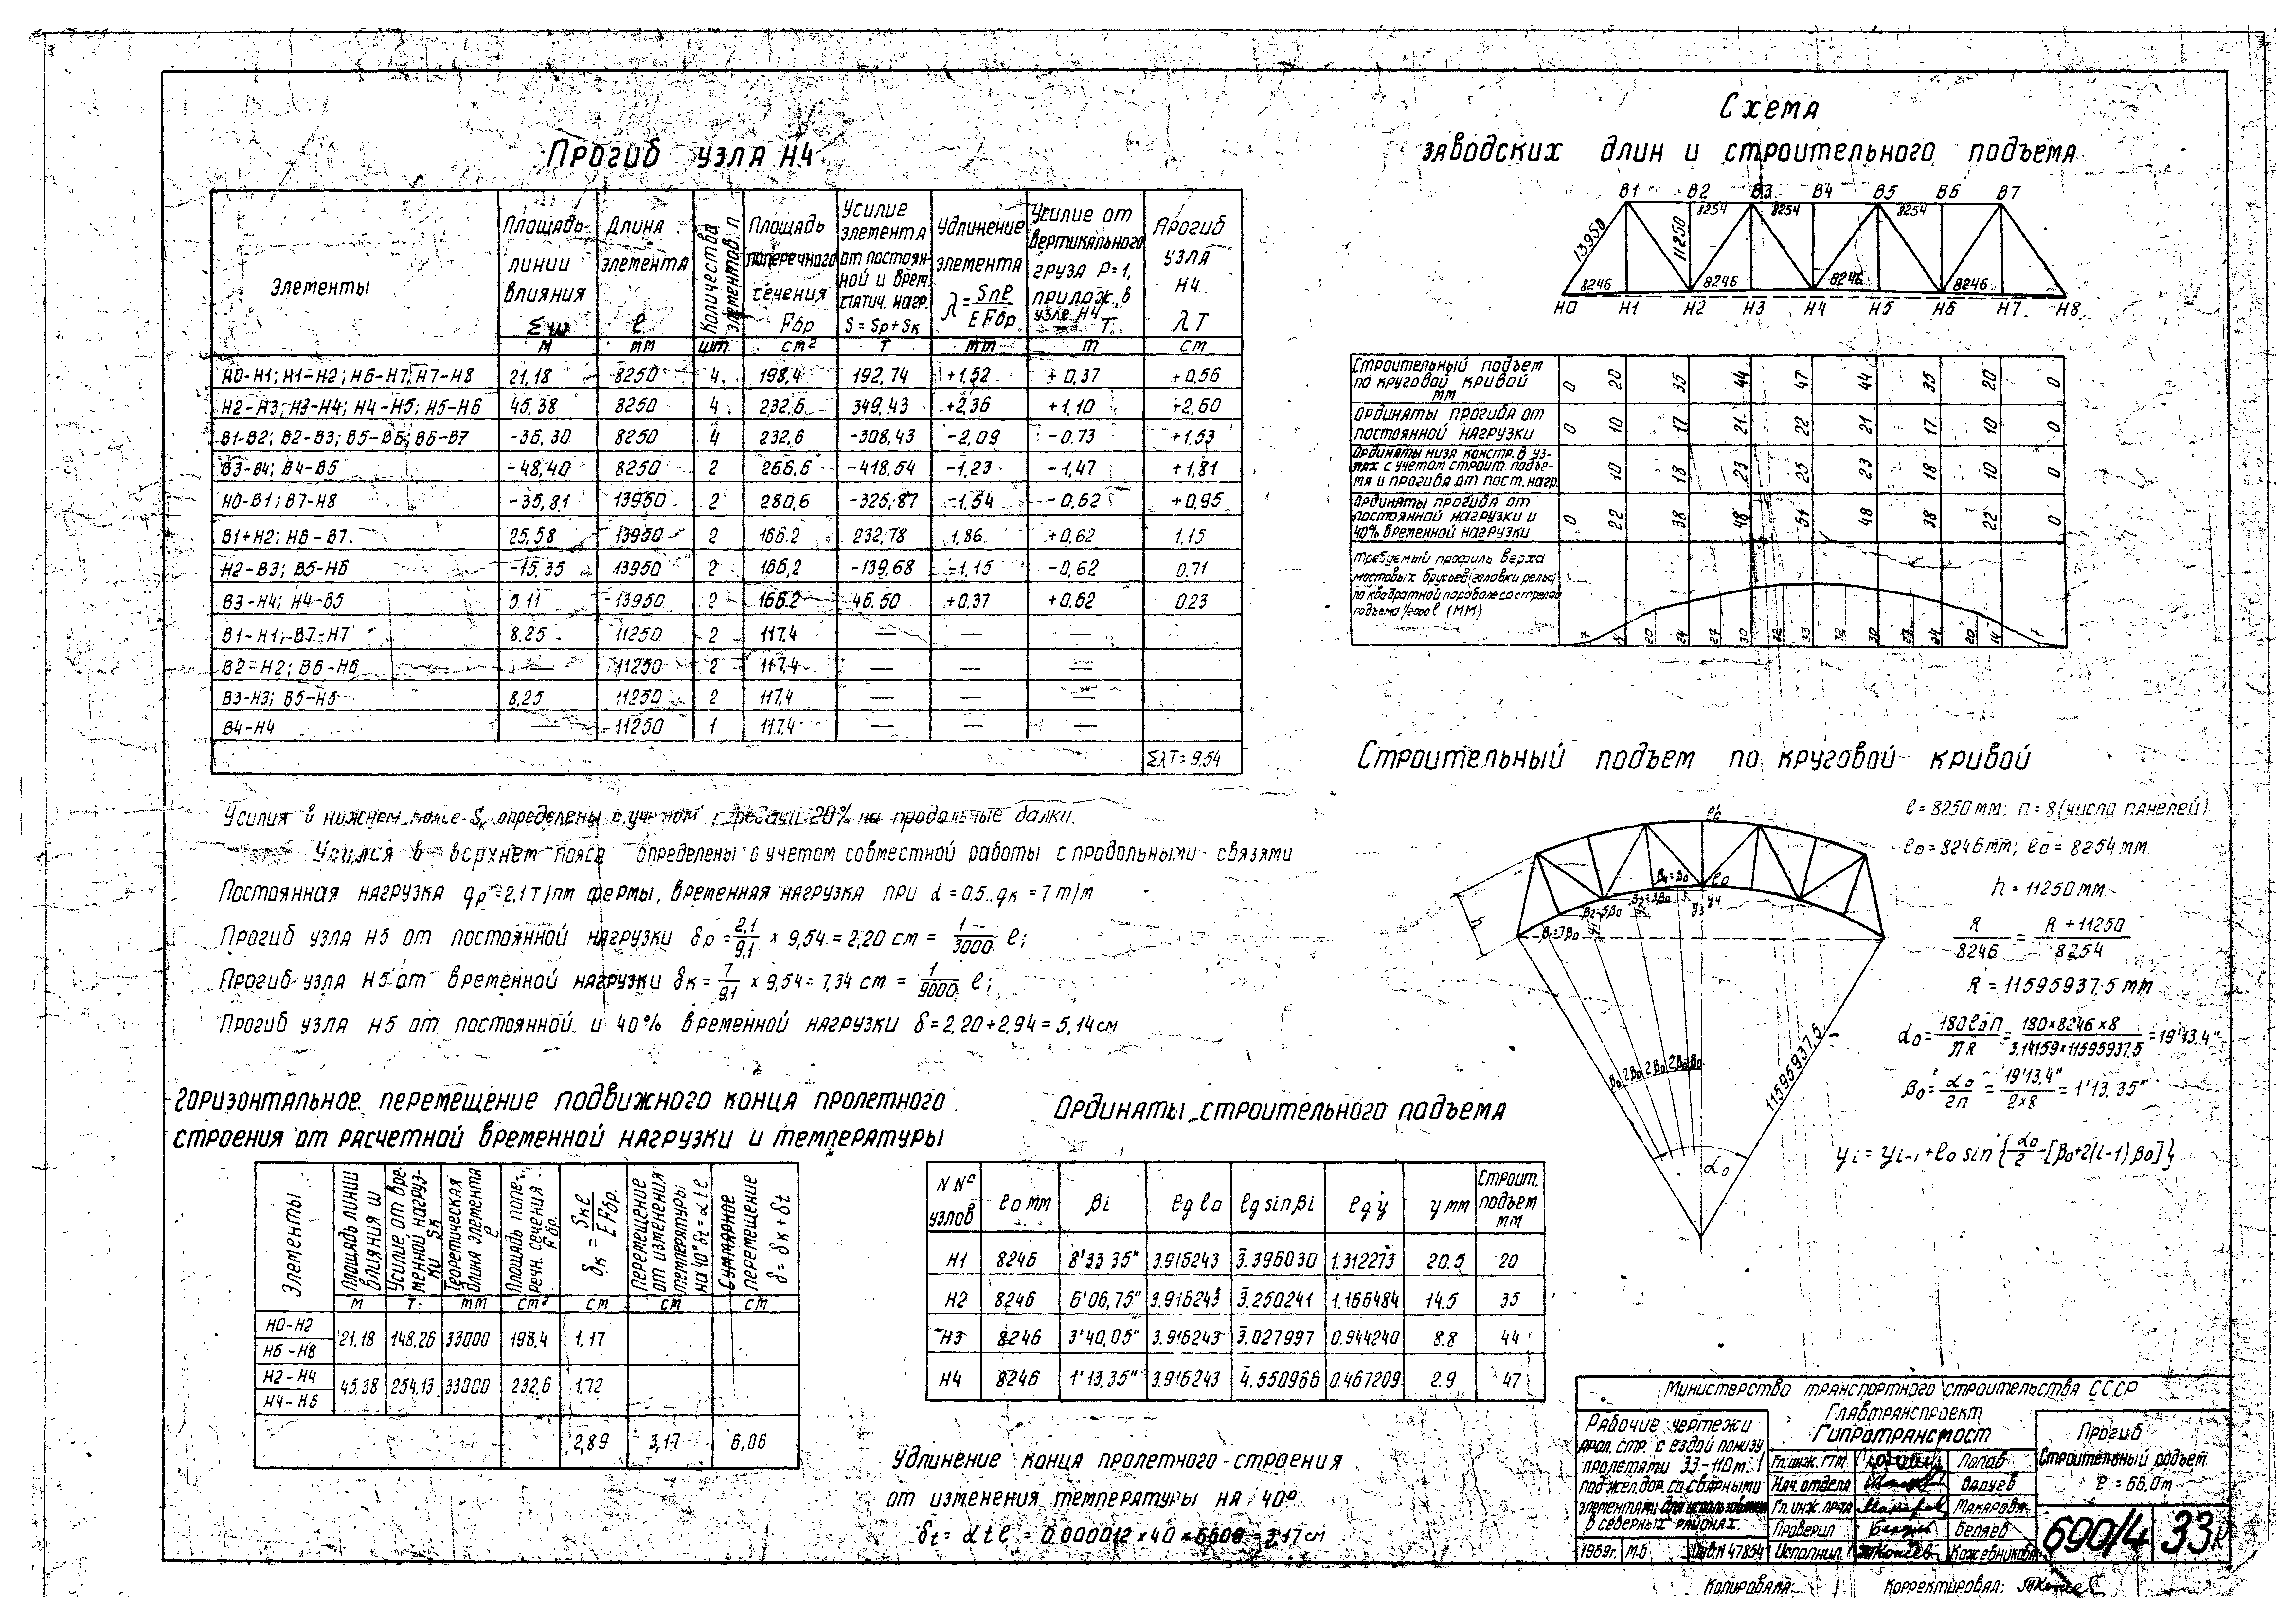 Прогиб узла Н4
Элементы
Площадь линии влияния Σω
Длина элемента ℓ
Количество элементов n
Площадь поперечного сечения Fбр
Усилие элемента от постоянной и врем. статич. нагр. S = Sр + Sк
Удлинение элемента λ = Snℓ / EFбр
Усилие от вертикального груза P=1, прилож. в узле Н4 T
Прогиб узла Н4 λT
м мм шт. см² т мм т см
Н0-Н1; Н1-Н2; Н6-Н7; Н7-Н8 21,18 8250 4 198,4 192,74 +1,52 +0,37 +0,56
Н2-Н3; Н3-Н4; Н4-Н5; Н5-Н6 45,38 8250 4 232,6 349,43 +2,36 +1,10 +2,60
В1-В2; В2-В3; В5-В6; В6-В7 -36,30 8250 4 232,6 -308,43 -2,09 -0,73 +1,53
В3-В4; В4-В5 -48,40 8250 2 266,6 -418,54 -1,23 -1,47 +1,81
Н0-В1; В7-Н8 -35,81 13950 2 280,6 -325,87 -1,54 -0,62 +0,95
В1+Н2; Н6-В7 25,58 13950 2 166.2 232,78 1,86 +0,62 1,15
Н2-В3; В5-Н6 -15,35 13950 2 166,2 -139,68 -1,15 -0,62 0.71
В3-Н4; Н4-В5 5.11 13950 2 166.2 46.50 +0.37 +0.62 0.23
В1-Н1; В7-Н7 8.25 11250 2 117.4 — — —
В2-Н2; В6-Н6 — 11250 2 117.4 — — —
В3-Н3; В5-Н5 8,25 11250 2 117,4 — — —
В4-Н4 — 11250 1 117.4 — — —
ΣλT = 9.54
Усилия в нижнем поясе Sк определены с учетом 20% на продольные балки.
Усилия в верхнем поясе определены с учетом совместной работы с продольными связями
Постоянная нагрузка qр = 2,1 т/пм фермы, временная нагрузка при α = 0.5 qк = 7 т/м
Прогиб узла Н5 от постоянной нагрузки δр = 2,1/9.1 × 9,54 = 2,20 см = 1/3000 ℓ;
Прогиб узла Н5 от временной нагрузки δк = 7/9.1 × 9,54 = 7,34 см = 1/9000 ℓ;
Прогиб узла Н5 от постоянной и 40% временной нагрузки δ = 2,20+2,94 = 5,14 см
Горизонтальное перемещение подвижного конца пролетного
строения от расчетной временной нагрузки и температуры
Элементы
Площадь линии влияния ω
Усилие от временной нагрузки Sк
Теоретическая длина элемента ℓ
Площадь поперечн. сечения Fбр.
δк = Sкℓ / EFбр.
Перемещение от изменения температуры на 40° δt = αtℓ
Суммарное перемещение δ = δк + δt
м т. мм см² см см см
Н0-Н2
Н6-Н8
21.18 148.26 33000 198.4 1.17
Н2-Н4
Н4-Н6
45,38 254.13 33000 232,6 1.72
2,89 3,17 6,06
Ординаты строительного подъема
N Nº узлов ℓ0 мм βi lg ℓ0 lg sin βi lg y y мм Строит. подъем мм
Н1 8246 8'33 35" 3.916243 3̄.396030 1.312273 20.5 20
Н2 8246 6'06,75" 3.916243 3̄.250241 1.166484 14.5 35
Н3 8246 3'40,05" 3.916243 3̄.027997 0.944240 8.8 44
Н4 8246 1'13,35" 3.916243 4̄.550966 0.467209 2.9 47
Удлинение конца пролетного строения
от изменения температуры на 40°
δt = αtℓ = 0.000012 × 40 × 6600 = 3,17 см
Схема
заводских длин и строительного подъема
В1 В2 В3 В4 В5 В6 В7
13950 11250 8254 8254 8254
8246 8246 8246 8246
Н0 Н1 Н2 Н3 Н4 Н5 Н6 Н7 Н8
Строительный подъем по круговой кривой мм 0 20 35 44 47 44 35 20 0
Ординаты прогиба от постоянной нагрузки 0 10 17 21 22 21 17 10 0
Ординаты низа констр. в узлах с учетом строит. подъема и прогиба от пост. нагр. 10 18 23 25 23 18 10 0
Ординаты прогиба от постоянной нагрузки и 40% временной нагрузки 0 22 38 48 51 48 38 22 0
Требуемый профиль верха мостовых брусьев (головки рельс) по квадратной параболе со стрелой подъема 1/2000 ℓ (мм)
7 14 20 24 27 30 32 33 32 30 27 24 20 14 7
Строительный подъем по круговой кривой
ℓ = 8250 мм; n = 8 (число панелей)
ℓ0 = 8246 мм; ℓ0' = 8254 мм
h = 11250 мм
R / 8246 = R + 11250 / 8254
R = 11595937.5 мм
α0 = 180ℓ0n / πR = 180×8246×8 / 3.14159×11595937.5 = 19'13.4"
β0 = α0 / 2n = 19'13.4" / 2×8 = 1'13,35"
yi = yi-1 + ℓ0 sin {α0/2 - [β0+2(i-1)β0]}
ℓ0'
h
β4=β0 ℓ0
β2=3β0 y3 y4
β2=5β0
β1=7β0
β0 2β0 2β0 2β0 β0
11595937.5
α0
Министерство транспортного строительства СССР
Главтранспроект
Гипротрансмост
Рабочие чертежи
прол. стр. с ездой понизу
пролетами 33-110 м.
под жел. дор. со сварными
элементами для использования
в северных районах.
Гл. инж. ГТМ Попов
Нач. отдела
Гл. инж. пр-та Макарова
Проверил Беляев
Исполнил Кожевникова
1959г. М.б Инв.N 47854
Прогиб
Строительный подъем
ℓ = 66,0 м
690/4 33к
Копировала:
Корректировал: